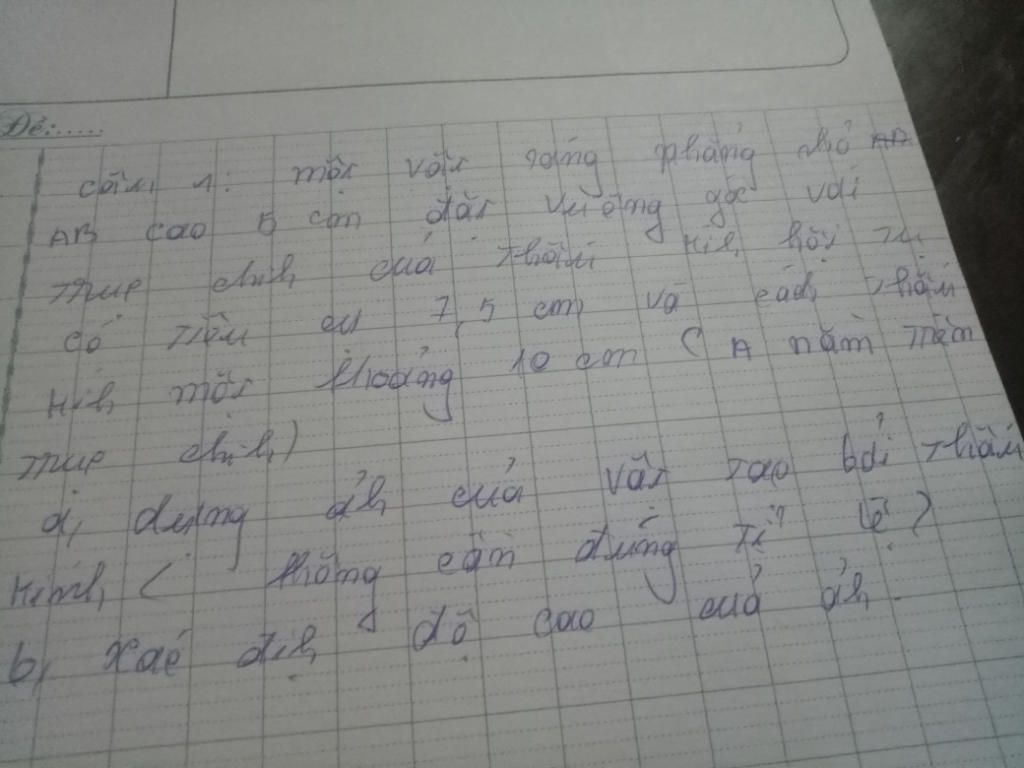 Đề:.....
câu 1: một vật sáng phẳng nhỏ AB
AB cao 5 cm đặt vuông góc với
trục chính của thấu kính hội tụ
có tiêu cự 7,5 cm và cách thấu
kính một khoảng 10 cm ( A nằm trên
trục chính)
a, dựng ảnh của vật tạo bởi thấu
kính ( không cần đúng tỉ lệ )
b, xác định độ cao của ảnh.